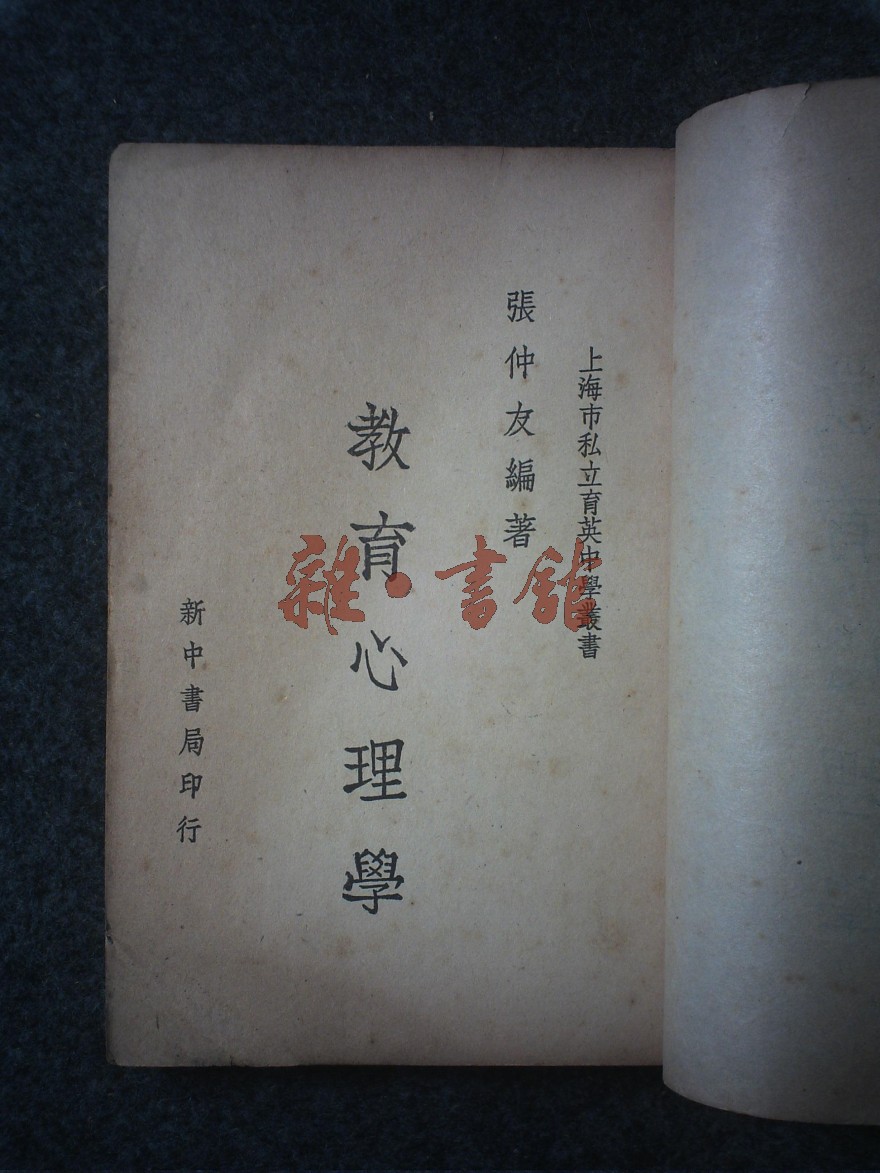 上海市私立育英中學叢書
張仲友編著
教育心理學
新中書局印行
雜·書館